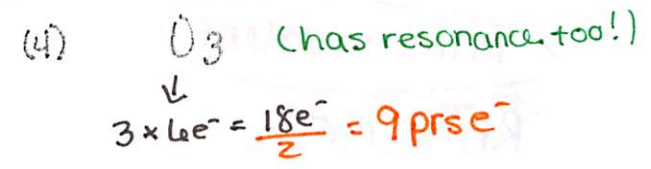 (4) O₃ (has resonance too!)
↓
3 × 6e⁻ = 18e⁻/2 = 9 prs e⁻